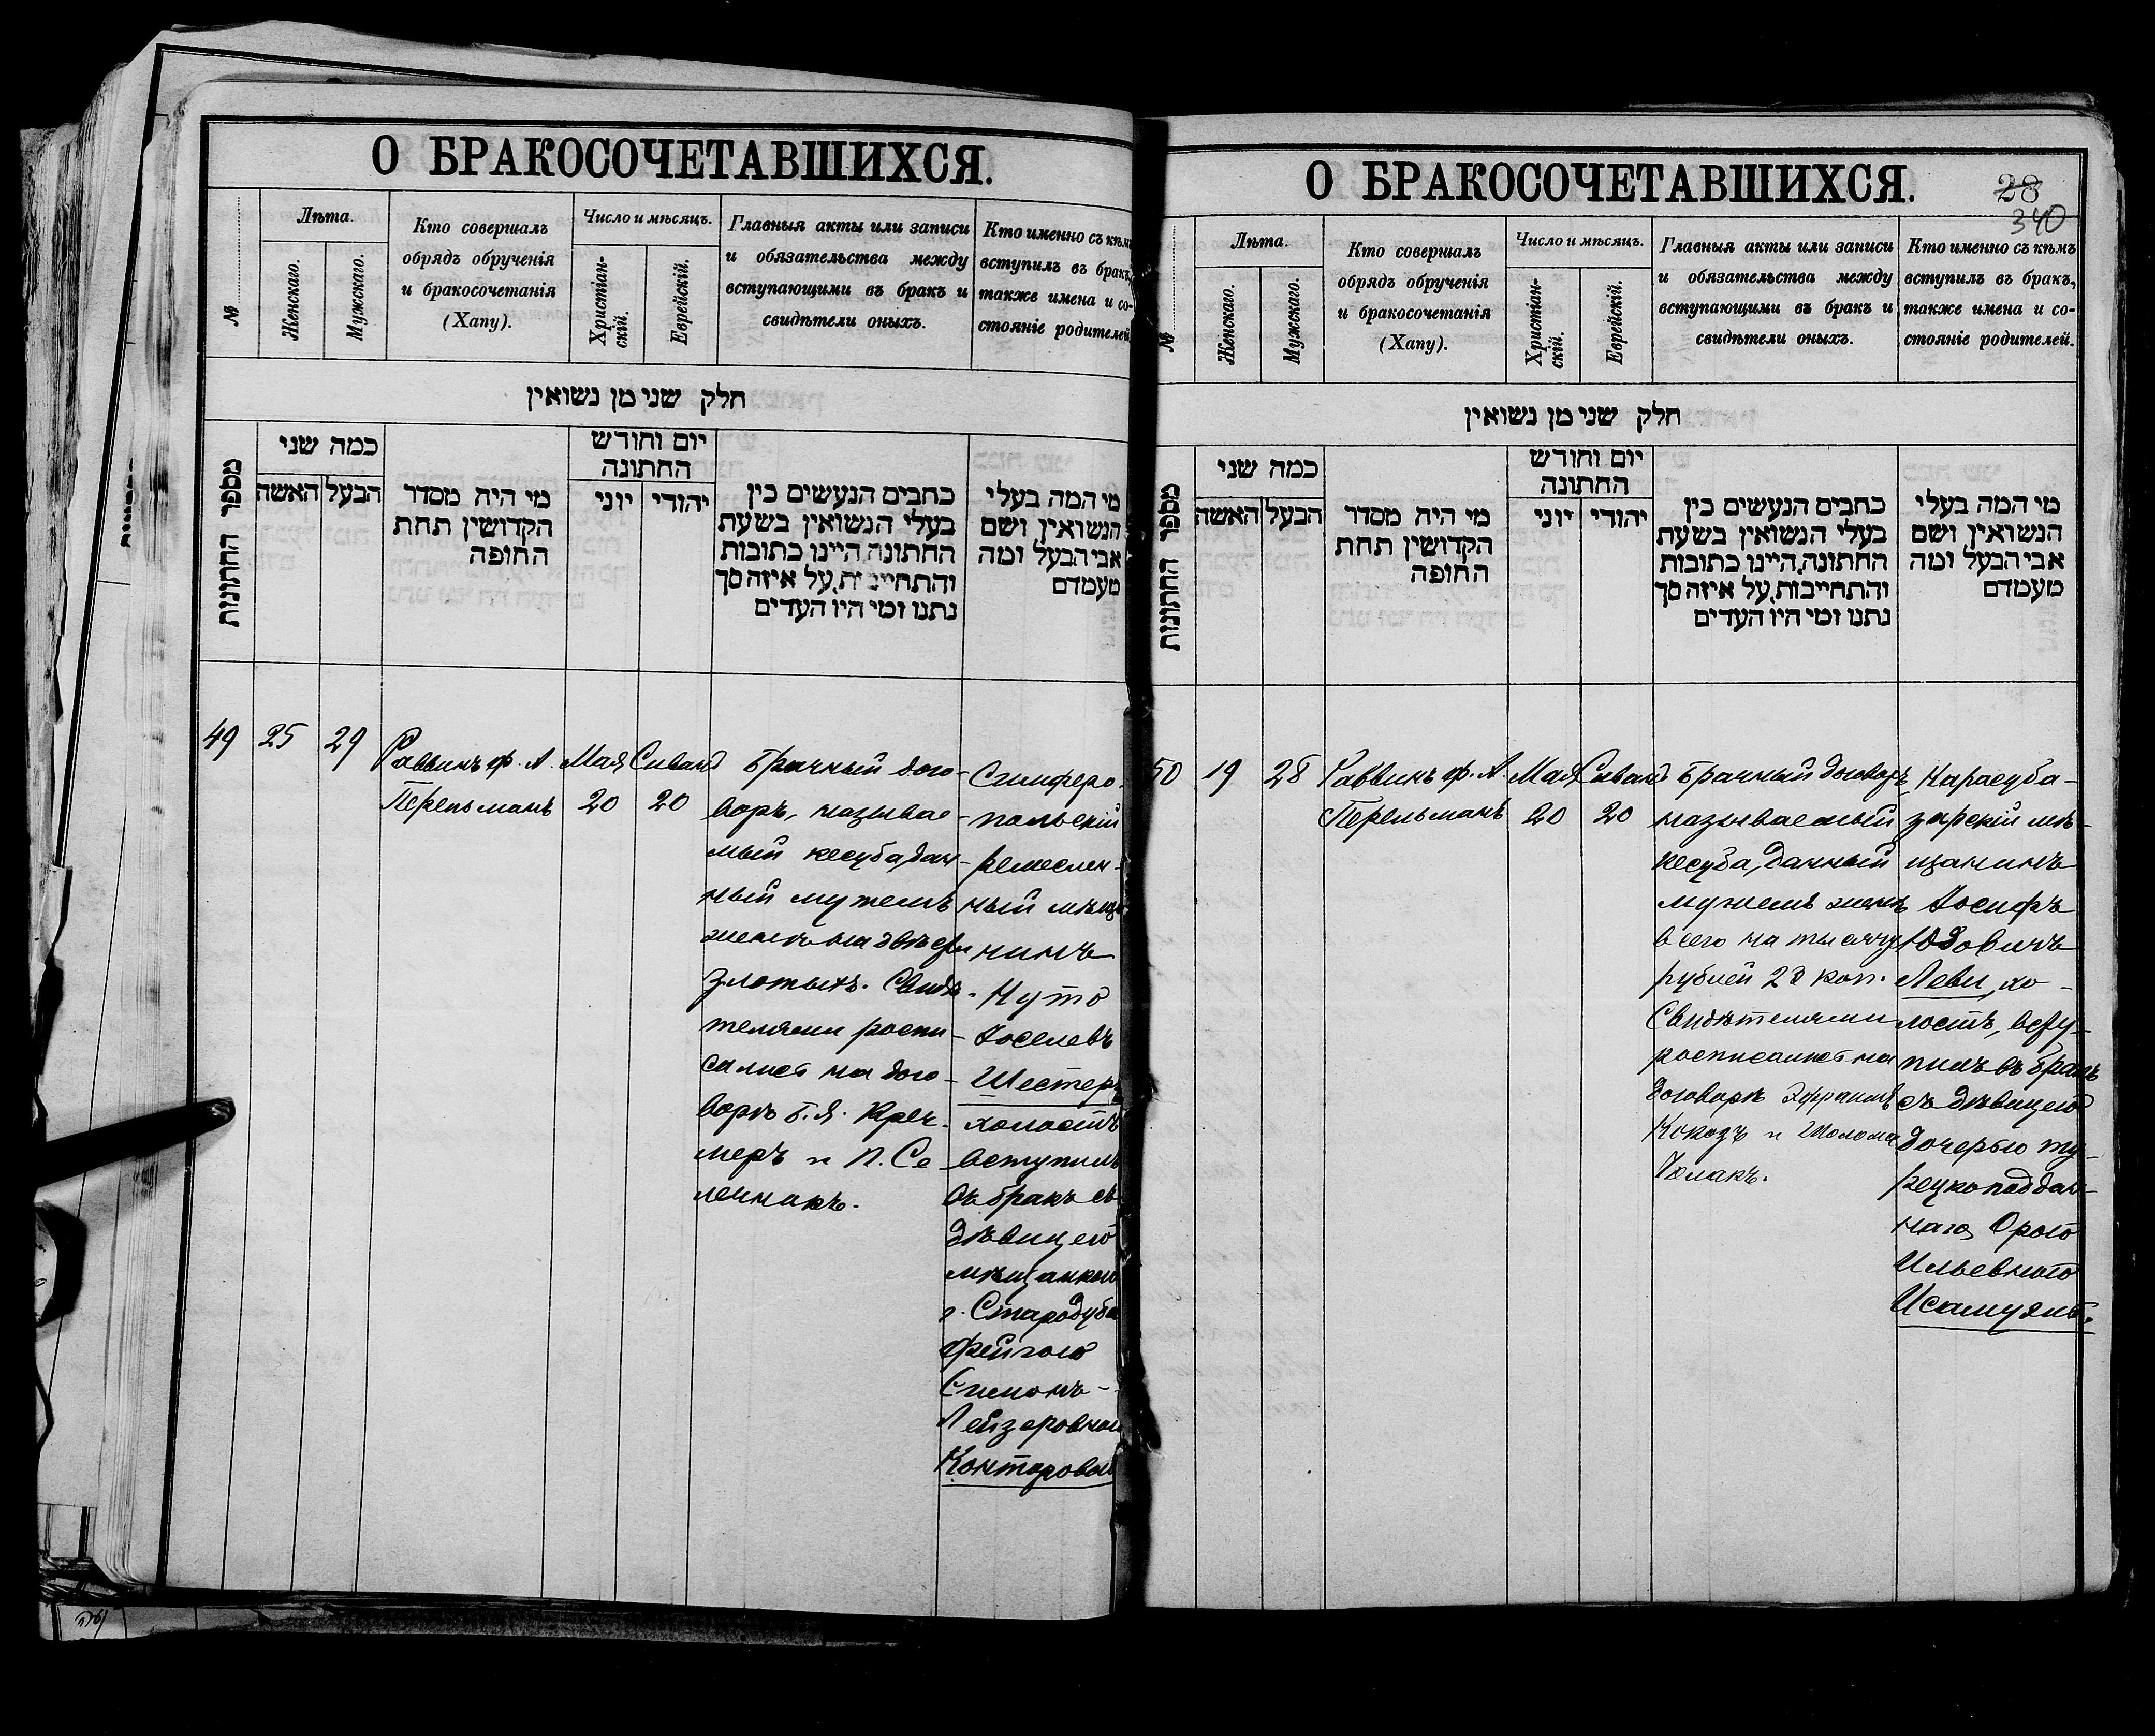 О БРАКОСОЧЕТАВШИХСЯ.
№
Лѣта.
Женскаго.
Мужскаго.
Кто совершалъ
обрядъ обрученія
и бракосочетанія
(Хапу).
Число и мѣсяцъ.
Христіан-
скій.
Еврейскій.
Главныя акты или записи
и обязательства между
вступающими въ бракъ и
свидѣтели оныхъ.
Кто именно съ кѣмъ
вступилъ въ бракъ,
также имена и со-
стояніе родителей.
חלק שני מן נשואין
מספר החתונות
כמה שני
האשה
הבעל
מי היה מסדר
הקדושין תחת
החופה
יום וחודש
החתונה
יוני
יהודי
כתבים הנעשים בין
בעלי הנשואין בשעת
החתונה, היינו כתובות
והתחייבות, על איזה סך
נתנו ומי היו העדים
מי המה בעלי
הנשואין ושם
אבי הבעל ומה
מעמדם
49
25
29
Раввинъ ф. А.
Перельманъ
Мая
20
Сиванъ
20
Брачный дого-
воръ, называе-
мый кесуба, дан-
ный мужемъ
женѣ на двѣсти
злотыхъ. Свидѣ-
телями роспи-
сались на дого-
ворѣ Б. Я. Кре-
меръ и П. Се
ленникъ.
Симферо-
польскій
ремеслен-
ный мѣща
нинъ
Нута
Іоселевъ
Шестеръ
холостъ
вступилъ
въ бракъ съ
дѣвицею
мѣщанкою
г. Стародуба
Фейгою
Симонъ-
Лейзеровною
Конторовой
О БРАКОСОЧЕТАВШИХСЯ.
28
340
№
Лѣта.
Женскаго.
Мужскаго.
Кто совершалъ
обрядъ обрученія
и бракосочетанія
(Хапу).
Число и мѣсяцъ.
Христіан-
скій.
Еврейскій.
Главныя акты или записи
и обязательства между
вступающими въ бракъ и
свидѣтели оныхъ.
Кто именно съ кѣмъ
вступилъ въ бракъ,
также имена и со-
стояніе родителей.
חלק שני מן נשואין
מספר החתונות
כמה שני
האשה
הבעל
מי היה מסדר
הקדושין תחת
החופה
יום וחודש
החתונה
יוני
יהודי
כתבים הנעשים בין
בעלי הנשואין בשעת
החתונה, היינו כתובות
והתחייבות, על איזה סך
נתנו ומי היו העדים
מי המה בעלי
הנשואין ושם
אבי הבעל ומה
מעמדם
50
19
28
Раввинъ ф. А.
Перельманъ
Мая
20
Сиванъ
20
Брачный договоръ
называемый
кесуба, данный
мужемъ женѣ
всего на тысячу
рублей 28 коп.
Свидѣтелями
росписались на
договорѣ Эфраимъ
Кокозъ и Шолома
Чолакъ.
Карасуба-
зарскій мѣ-
щанинъ
Іосифъ
Юдовичъ
Леви, хо-
лостъ, всту-
пилъ въ бракъ
съ дѣвицею
дочерью ту-
рецкоподдан-
наго, Орою
Ильевною
Исамуянъ.